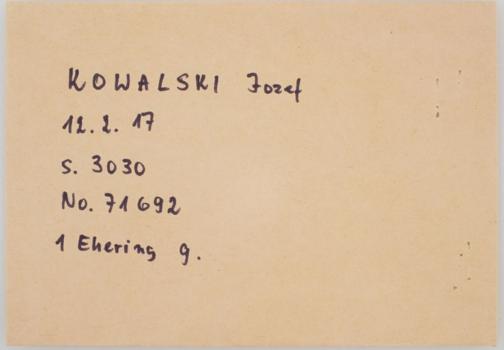 KOWALSKI Jozef
12.2.17
S. 3030
No. 71692
1 Ehering g.